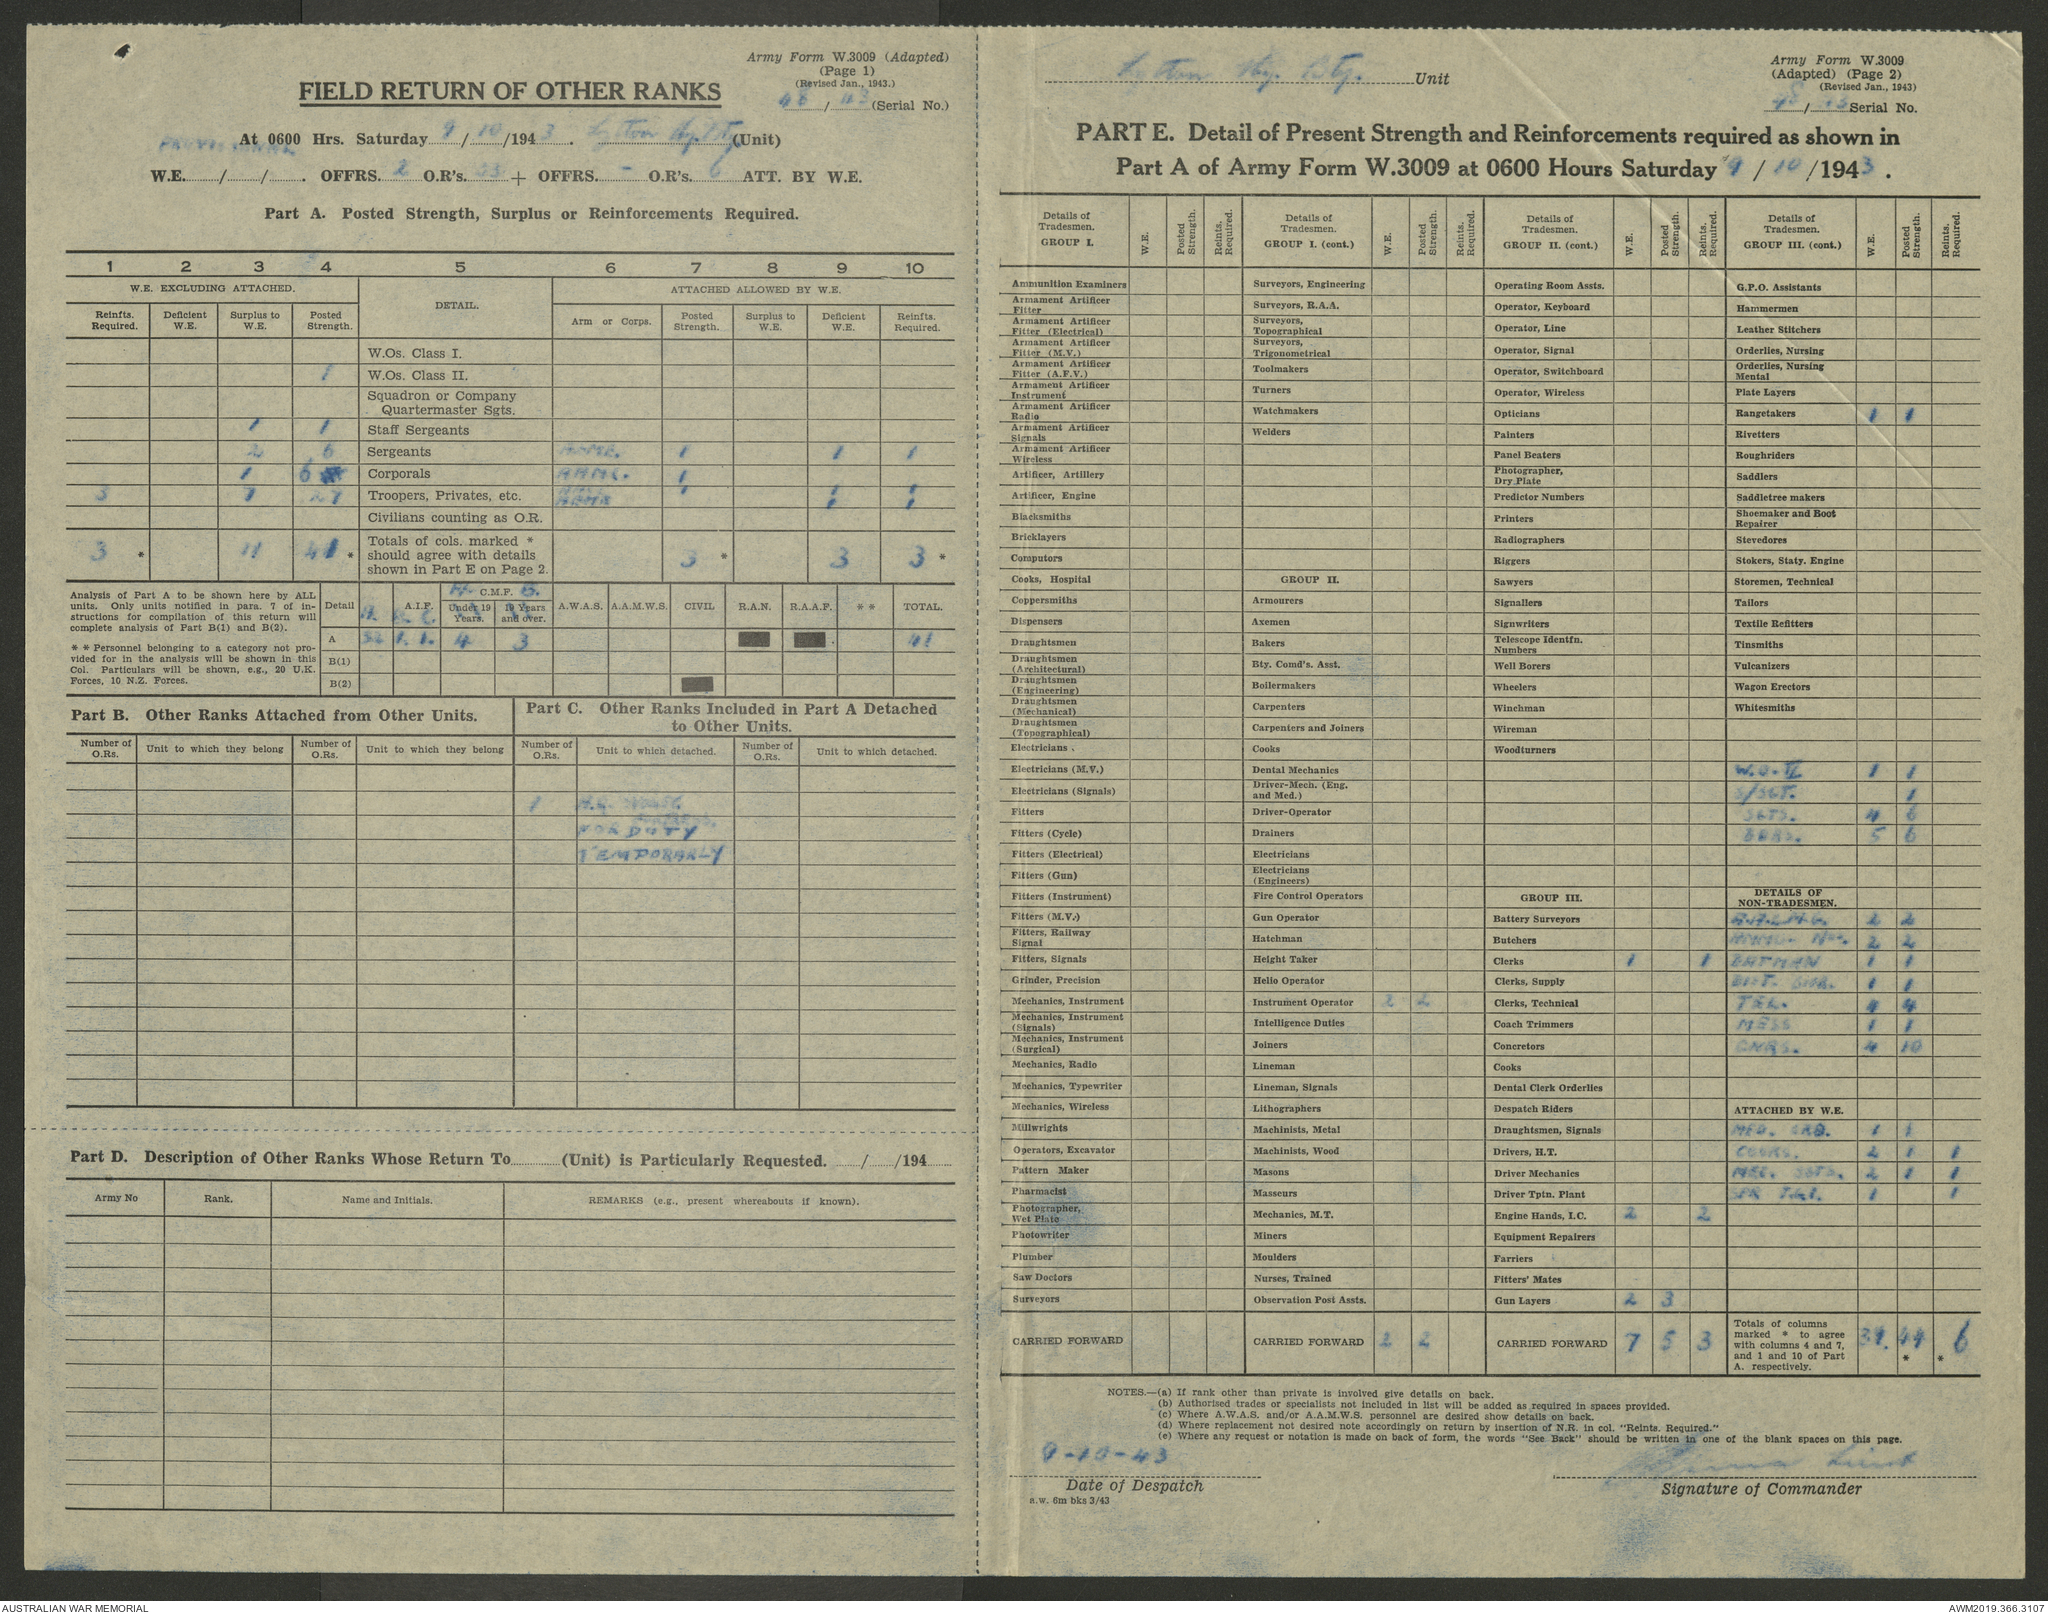 Army Form W.3009 (Adapted)
(Page 1)
(Revised Jan., 1943.)
48/43 (Serial No.)
FIELD RETURN OF OTHER RANKS
At 0600 Hrs. Saturday 9/10/1943. Lytton Hy. Bty (Unit)
PROVISIONAL
W.E. / / . OFFRS. 2 O.R's. 33 + OFFRS. - O.R's. 6 ATT. BY W.E.
Part A. Posted Strength, Surplus or Reinforcements Required.
1 2 3 4 5 6 7 8 9 10
W.E. EXCLUDING ATTACHED. DETAIL. ATTACHED ALLOWED BY W.E.
Reinfts. Required. Deficient W.E. Surplus to W.E. Posted Strength. Arm or Corps. Posted Strength. Surplus to W.E. Deficient W.E. Reinfts. Required.
W.Os. Class I.
1 W.Os. Class II.
Squadron or Company
Quartermaster Sgts.
1 1 Staff Sergeants
2 6 Sergeants 1 1 1
1 6 Corporals A.A.M.C. 1
3 7 27 Troopers, Privates, etc. 1 1 1
1 1
Civilians counting as O.R.
3 * 11 41 * Totals of cols. marked * should agree with details shown in Part E on Page 2. 3 * 3 3 *
Analysis of Part A to be shown here by ALL units. Only units notified in para. 7 of instructions for compilation of this return will complete analysis of Part B(1) and B(2).
* * Personnel belonging to a category not provided for in the analysis will be shown in this Col. Particulars will be shown, e.g., 20 U.K. Forces, 10 N.Z. Forces.
Detail A.I.F. C.M.F. Under 19 Years. 19 Years and over. A.W.A.S. A.A.M.W.S. CIVIL R.A.N. R.A.A.F. * * TOTAL.
A 32 1. 1. 4 3 41
B(1)
B(2)
Part B. Other Ranks Attached from Other Units.
Part C. Other Ranks Included in Part A Detached to Other Units.
Number of O.Rs. Unit to which they belong Number of O.Rs. Unit to which they belong Number of O.Rs. Unit to which detached. Number of O.Rs. Unit to which detached.
1
FOR DUTY
TEMPORARLY
Part D. Description of Other Ranks Whose Return To (Unit) is Particularly Requested. / /194
Army No Rank. Name and Initials. REMARKS (e.g., present whereabouts if known).
Lytton Hy. Bty. Unit
Army Form W.3009
(Adapted) (Page 2)
(Revised Jan., 1943)
48/43 Serial No.
PART E. Detail of Present Strength and Reinforcements required as shown in
Part A of Army Form W.3009 at 0600 Hours Saturday 9/10/1943.
Details of Tradesmen. GROUP I. W.E. Posted Strength. Reints. Required.
Ammunition Examiners
Armament Artificer Fitter
Armament Artificer Fitter (Electrical)
Armament Artificer Fitter (M.V.)
Armament Artificer Fitter (A.F.V.)
Armament Artificer Instrument
Armament Artificer Radio
Armament Artificer Signals
Armament Artificer Wireless
Artificer, Artillery
Artificer, Engine
Blacksmiths
Bricklayers
Computors
Cooks, Hospital
Coppersmiths
Dispensers
Draughtsmen
Draughtsmen (Architectural)
Draughtsmen (Engineering)
Draughtsmen (Mechanical)
Draughtsmen (Topographical)
Electricians
Electricians (M.V.)
Electricians (Signals)
Fitters
Fitters (Cycle)
Fitters (Electrical)
Fitters (Gun)
Fitters (Instrument)
Fitters (M.V.)
Fitters, Railway Signal
Fitters, Signals
Grinder, Precision
Mechanics, Instrument
Mechanics, Instrument (Signals)
Mechanics, Instrument (Surgical)
Mechanics, Radio
Mechanics, Typewriter
Mechanics, Wireless
Millwrights
Operators, Excavator
Pattern Maker
Pharmacist
Photographer, Wet Plate
Photowriter
Plumber
Saw Doctors
Surveyors
CARRIED FORWARD
Details of Tradesmen. GROUP I. (cont.) W.E. Posted Strength. Reints. Required.
Surveyors, Engineering
Surveyors, R.A.A.
Surveyors, Topographical
Surveyors, Trigonometrical
Toolmakers
Turners
Watchmakers
Welders
GROUP II.
Armourers
Axemen
Bakers
Bty. Comd's. Asst.
Boilermakers
Carpenters
Carpenters and Joiners
Cooks
Dental Mechanics
Driver-Mech. (Eng. and Med.)
Driver-Operator
Drainers
Electricians
Electricians (Engineers)
Fire Control Operators
Gun Operator
Hatchman
Height Taker
Helio Operator
Instrument Operator 2 2
Intelligence Duties
Joiners
Lineman
Lineman, Signals
Lithographers
Machinists, Metal
Machinists, Wood
Masons
Masseurs
Mechanics, M.T.
Miners
Moulders
Nurses, Trained
Observation Post Assts.
CARRIED FORWARD 2 2
Details of Tradesmen. GROUP II. (cont.) W.E. Posted Strength. Reints. Required.
Operating Room Assts.
Operator, Keyboard
Operator, Line
Operator, Signal
Operator, Switchboard
Operator, Wireless
Opticians
Painters
Panel Beaters
Photographer, Dry Plate
Predictor Numbers
Printers
Radiographers
Riggers
Sawyers
Signallers
Signwriters
Telescope Identfn. Numbers
Well Borers
Wheelers
Winchman
Wireman
Woodturners
GROUP III.
Battery Surveyors
Butchers
Clerks 1 1
Clerks, Supply
Clerks, Technical
Coach Trimmers
Concretors
Cooks
Dental Clerk Orderlies
Despatch Riders
Draughtsmen, Signals
Drivers, H.T.
Driver Mechanics
Driver Tptn. Plant
Engine Hands, I.C. 2 2
Equipment Repairers
Farriers
Fitters' Mates
Gun Layers 2 3
CARRIED FORWARD 7 5 3
Details of Tradesmen. GROUP III. (cont.) W.E. Posted Strength. Reints. Required.
G.P.O. Assistants
Hammermen
Leather Stitchers
Orderlies, Nursing
Orderlies, Nursing Mental
Plate Layers
Rangetakers 1 1
Rivetters
Roughriders
Saddlers
Saddletree makers
Shoemaker and Boot Repairer
Stevedores
Stokers, Staty. Engine
Storemen, Technical
Tailors
Textile Refitters
Tinsmiths
Vulcanizers
Wagon Erectors
Whitesmiths
W.O. II 1 1
S/SGT. 1
SGTS. 4 6
BDRS. 5 6
DETAILS OF NON-TRADESMEN.
2 2
2 2
BATMAN 1 1
1 1
TEL. 4 4
MESS 1 1
GNRS. 4 10
ATTACHED BY W.E.
MED. ORD. 1 1
COOKS. 2 1 1
2 1 1
1 1
Totals of columns marked * to agree with columns 4 and 7, and 1 and 10 of Part A. respectively. 39. 44 * * 6
NOTES.—(a) If rank other than private is involved give details on back.
(b) Authorised trades or specialists not included in list will be added as required in spaces provided.
(c) Where A.W.A.S. and/or A.A.M.W.S. personnel are desired show details on back.
(d) Where replacement not desired note accordingly on return by insertion of N.R. in col. "Reints. Required."
(e) Where any request or notation is made on back of form, the words "See Back" should be written in one of the blank spaces on this page.
9-10-43
Date of Despatch
a.w. 6m bks 3/43
Lieut
Signature of Commander
AUSTRALIAN WAR MEMORIAL
AWM2019.366.3107